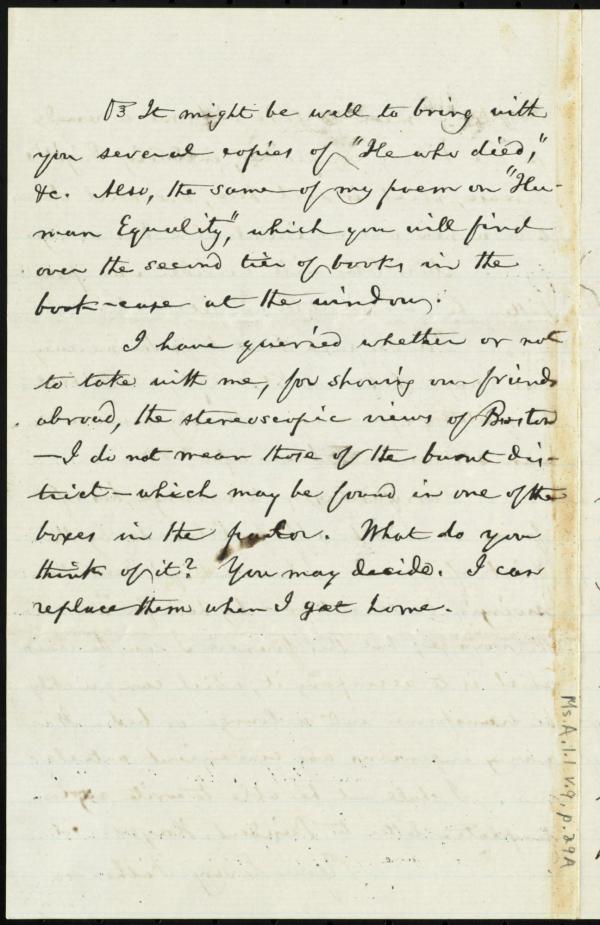 P.S. It might be well to bring with
you several copies of "He who died,"
&c. Also, the same of my poem on "Hu-
man Equality," which you will find
over the second tier of books in the
book-case at the window.
I have queried whether or not
to take with me, for showing our friends
abroad, the stereoscopic views of Boston
—I do not mean those of the burnt dis-
trict—which may be found in one of the
boxes in the parlor. What do you
think of it? You may decide. I can
replace them when I get home.
Ms.A.1.1 v.9, p.29A